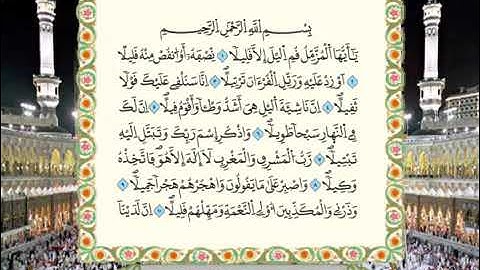 بِسْمِ اللَّهِ الرَّحْمَٰنِ الرَّحِيمِ
يَا أَيُّهَا الْمُزَّمِّلُ قُمِ الَّيْلَ إِلَّا قَلِيلًا ۝ نِصْفَهُ أَوِ انقُصْ مِنْهُ قَلِيلًا
۝ أَوْ زِدْ عَلَيْهِ وَرَتِّلِ الْقُرْءَانَ تَرْتِيلًا ۝ إِنَّا سَنُلْقِي عَلَيْكَ قَوْلًا
ثَقِيلًا ۝ إِنَّ نَاشِئَةَ الَّيْلِ هِيَ أَشَدُّ وَطْئًا وَأَقْوَمُ قِيلًا ۝ إِنَّ لَكَ
فِي النَّهَارِ سَبْحًا طَوِيلًا ۝ وَاذْكُرِ اسْمَ رَبِّكَ وَتَبَتَّلْ إِلَيْهِ
تَبْتِيلًا ۝ رَّبُّ الْمَشْرِقِ وَالْمَغْرِبِ لَا إِلَٰهَ إِلَّا هُوَ فَاتَّخِذْهُ
وَكِيلًا ۝ وَاصْبِرْ عَلَىٰ مَا يَقُولُونَ وَاهْجُرْهُمْ هَجْرًا جَمِيلًا ۝
وَذَرْنِي وَالْمُكَذِّبِينَ أُولِي النَّعْمَةِ وَمَهِّلْهُمْ قَلِيلًا ۝ إِنَّ لَدَيْنَا